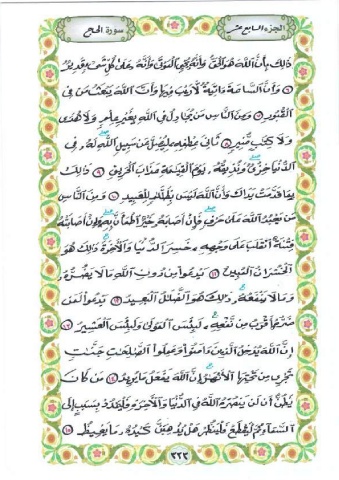 الجزء السابع عشر
سورة الحج
ذَٰلِكَ بِأَنَّ ٱللَّهَ هُوَ ٱلْحَقُّ وَأَنَّهُۥ يُحْىِ ٱلْمَوْتَىٰ وَأَنَّهُۥ عَلَىٰ كُلِّ شَىْءٍ قَدِيرٌ
٦ وَأَنَّ ٱلسَّاعَةَ ءَاتِيَةٌ لَّا رَيْبَ فِيهَا وَأَنَّ ٱللَّهَ يَبْعَثُ مَن فِى
ٱلْقُبُورِ ٧ وَمِنَ ٱلنَّاسِ مَن يُجَٰدِلُ فِى ٱللَّهِ بِغَيْرِ عِلْمٍ وَلَا هُدًى
وَلَا كِتَٰبٍ مُّنِيرٍ ٨ ثَانِىَ عِطْفِهِۦ لِيُضِلَّ عَن سَبِيلِ ٱللَّهِ لَهُۥ فِى
ٱلدُّنْيَا خِزْىٌ وَنُذِيقُهُۥ يَوْمَ ٱلْقِيَٰمَةِ عَذَابَ ٱلْحَرِيقِ ٩ ذَٰلِكَ
بِمَا قَدَّمَتْ يَدَاكَ وَأَنَّ ٱللَّهَ لَيْسَ بِظَلَّٰمٍ لِّلْعَبِيدِ ١٠ وَمِنَ ٱلنَّاسِ
مَن يَعْبُدُ ٱللَّهَ عَلَىٰ حَرْفٍ فَإِنْ أَصَابَهُۥ خَيْرٌ ٱطْمَأَنَّ بِهِۦ وَإِنْ أَصَابَتْهُ
فِتْنَةٌ ٱنقَلَبَ عَلَىٰ وَجْهِهِۦ خَسِرَ ٱلدُّنْيَا وَٱلْءَاخِرَةَ ذَٰلِكَ هُوَ
ٱلْخُسْرَانُ ٱلْمُبِينُ ١١ يَدْعُوا۟ مِن دُونِ ٱللَّهِ مَا لَا يَضُرُّهُۥ
وَمَا لَا يَنفَعُهُۥ ذَٰلِكَ هُوَ ٱلضَّلَٰلُ ٱلْبَعِيدُ ١٢ يَدْعُوا۟ لَمَن
ضَرُّهُۥٓ أَقْرَبُ مِن نَّفْعِهِۦ لَبِئْسَ ٱلْمَوْلَىٰ وَلَبِئْسَ ٱلْعَشِيرُ ١٣
إِنَّ ٱللَّهَ يُدْخِلُ ٱلَّذِينَ ءَامَنُوا۟ وَعَمِلُوا۟ ٱلصَّٰلِحَٰتِ جَنَّٰتٍ
تَجْرِى مِن تَحْتِهَا ٱلْأَنْهَٰرُ إِنَّ ٱللَّهَ يَفْعَلُ مَا يُرِيدُ ١٤ مَن كَانَ
يَظُنُّ أَن لَّن يَنصُرَهُ ٱللَّهُ فِى ٱلدُّنْيَا وَٱلْءَاخِرَةِ فَلْيَمْدُدْ بِسَبَبٍ إِلَى
ٱلسَّمَآءِ ثُمَّ لْيَقْطَعْ فَلْيَنظُرْ هَلْ يُذْهِبَنَّ كَيْدُهُۥ مَا يَغِيظُ ١٥
٣٣٣